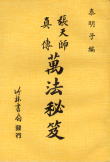 秦明子編
張天師
真傳
萬法秘笈
竹林書局
發行